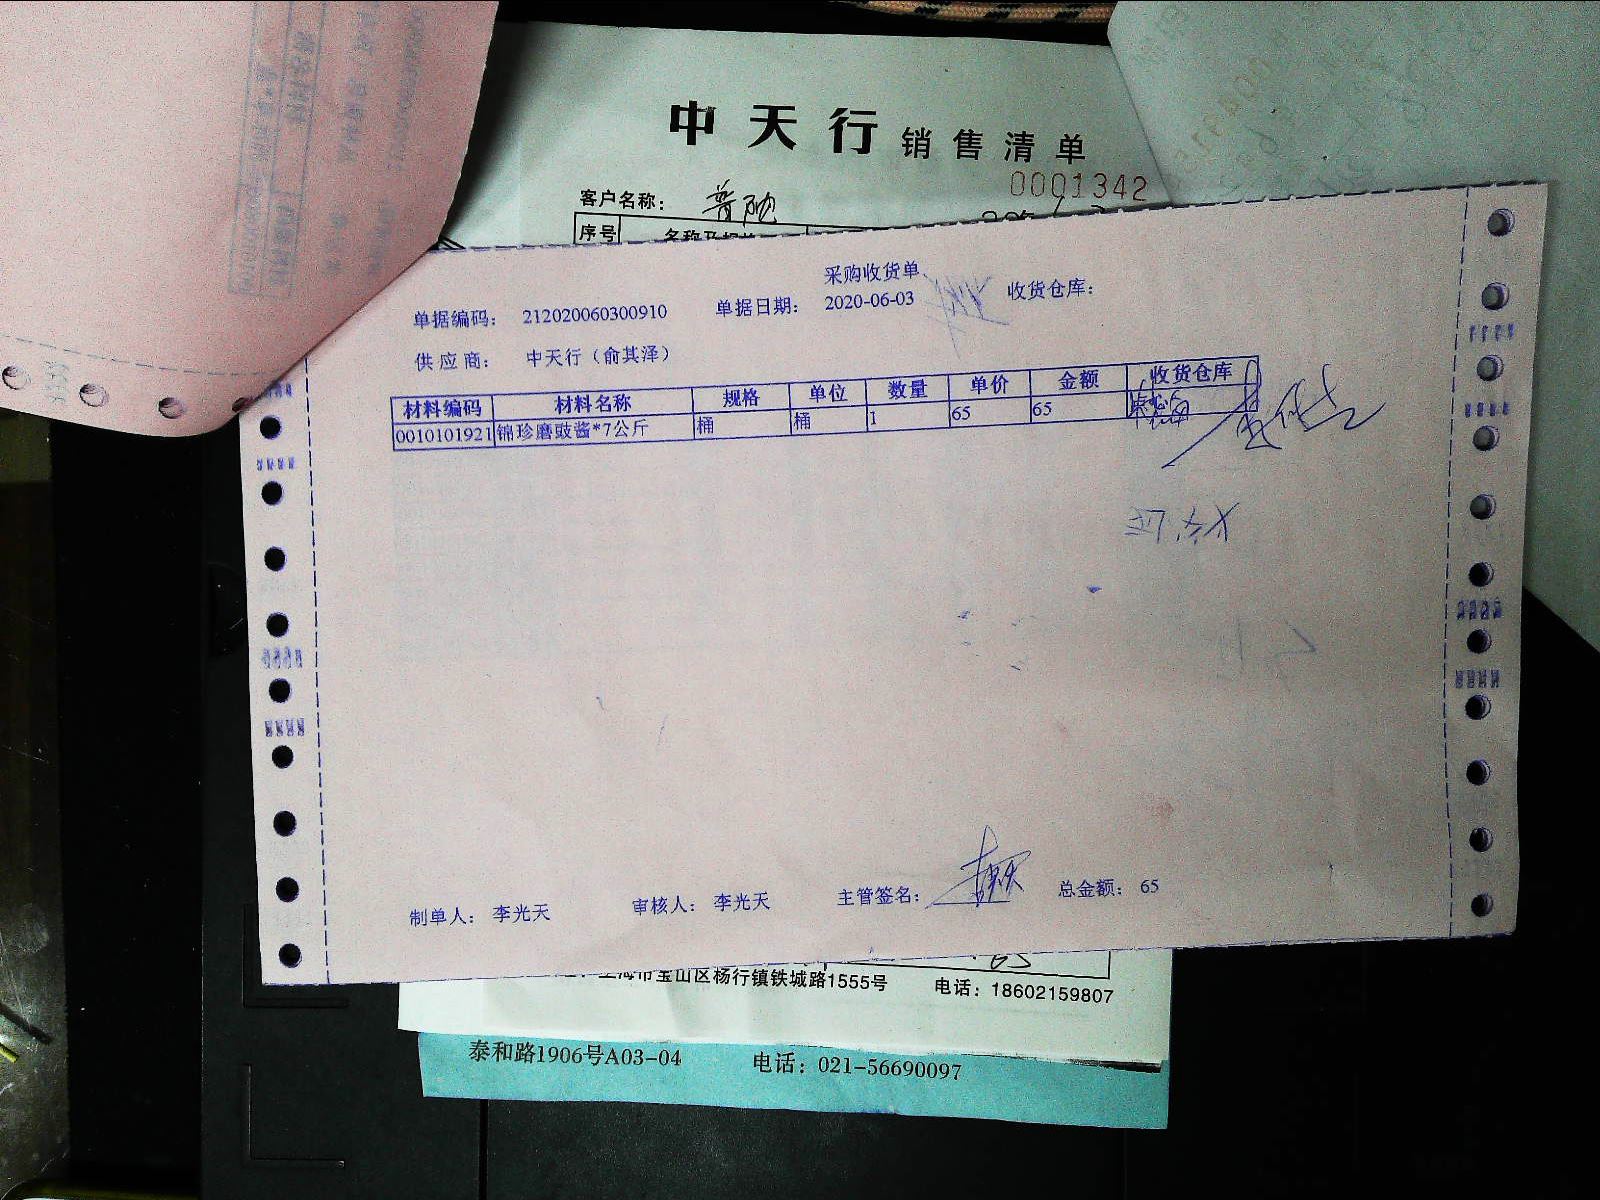 中天行 销售清单
0001342
客户名称：
序号
采购收货单
单据编码： 212020060300910 单据日期： 2020-06-03 收货仓库：
供 应 商： 中天行（俞其泽）
材料编码 材料名称 规格 单位 数量 单价 金额 收货仓库
0010101921 锦珍磨豉酱*7公斤 桶 桶 1 65 65
制单人： 李光天 审核人： 李光天 主管签名： 总金额： 65
上海市宝山区杨行镇铁城路1555号 电话：18602159807
泰和路1906号A03-04 电话：021-56690097